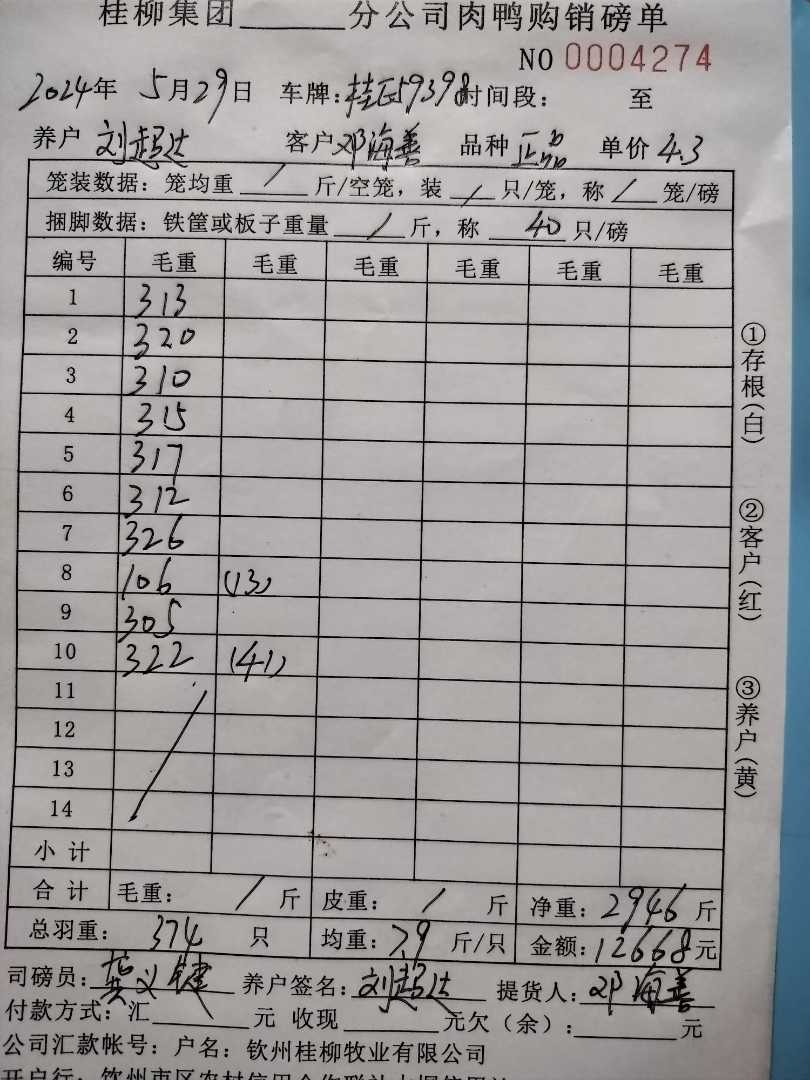 桂柳集团______分公司肉鸭购销磅单
NO 0004274
2024年 5月29日 车牌:桂 59398 时间段: 至
养户 刘超达 客户 邓海善 品种 正品 单价 4.3
笼装数据:笼均重 / 斤/空笼,装 / 只/笼,称 / 笼/磅
捆脚数据:铁筐或板子重量 / 斤,称 40 只/磅
编号 毛重 毛重 毛重 毛重 毛重 毛重
1 313
2 320
3 310
4 315
5 317
6 312
7 326
8 106 (13)
9 305
10 322 (41)
11
12
13
14
小计
合计 毛重: / 斤 皮重: / 斤 净重:2946斤
总羽重: 374 只 均重:7.9 斤/只 金额:12668元
司磅员: 义键 养户签名:刘超达 提货人:邓海善
付款方式:汇______元 收现______元欠(余):______元
公司汇款帐号:户名:钦州桂柳牧业有限公司
开户行:钦州市区农村信用合作联社
①存根(白)
②客户(红)
③养户(黄)